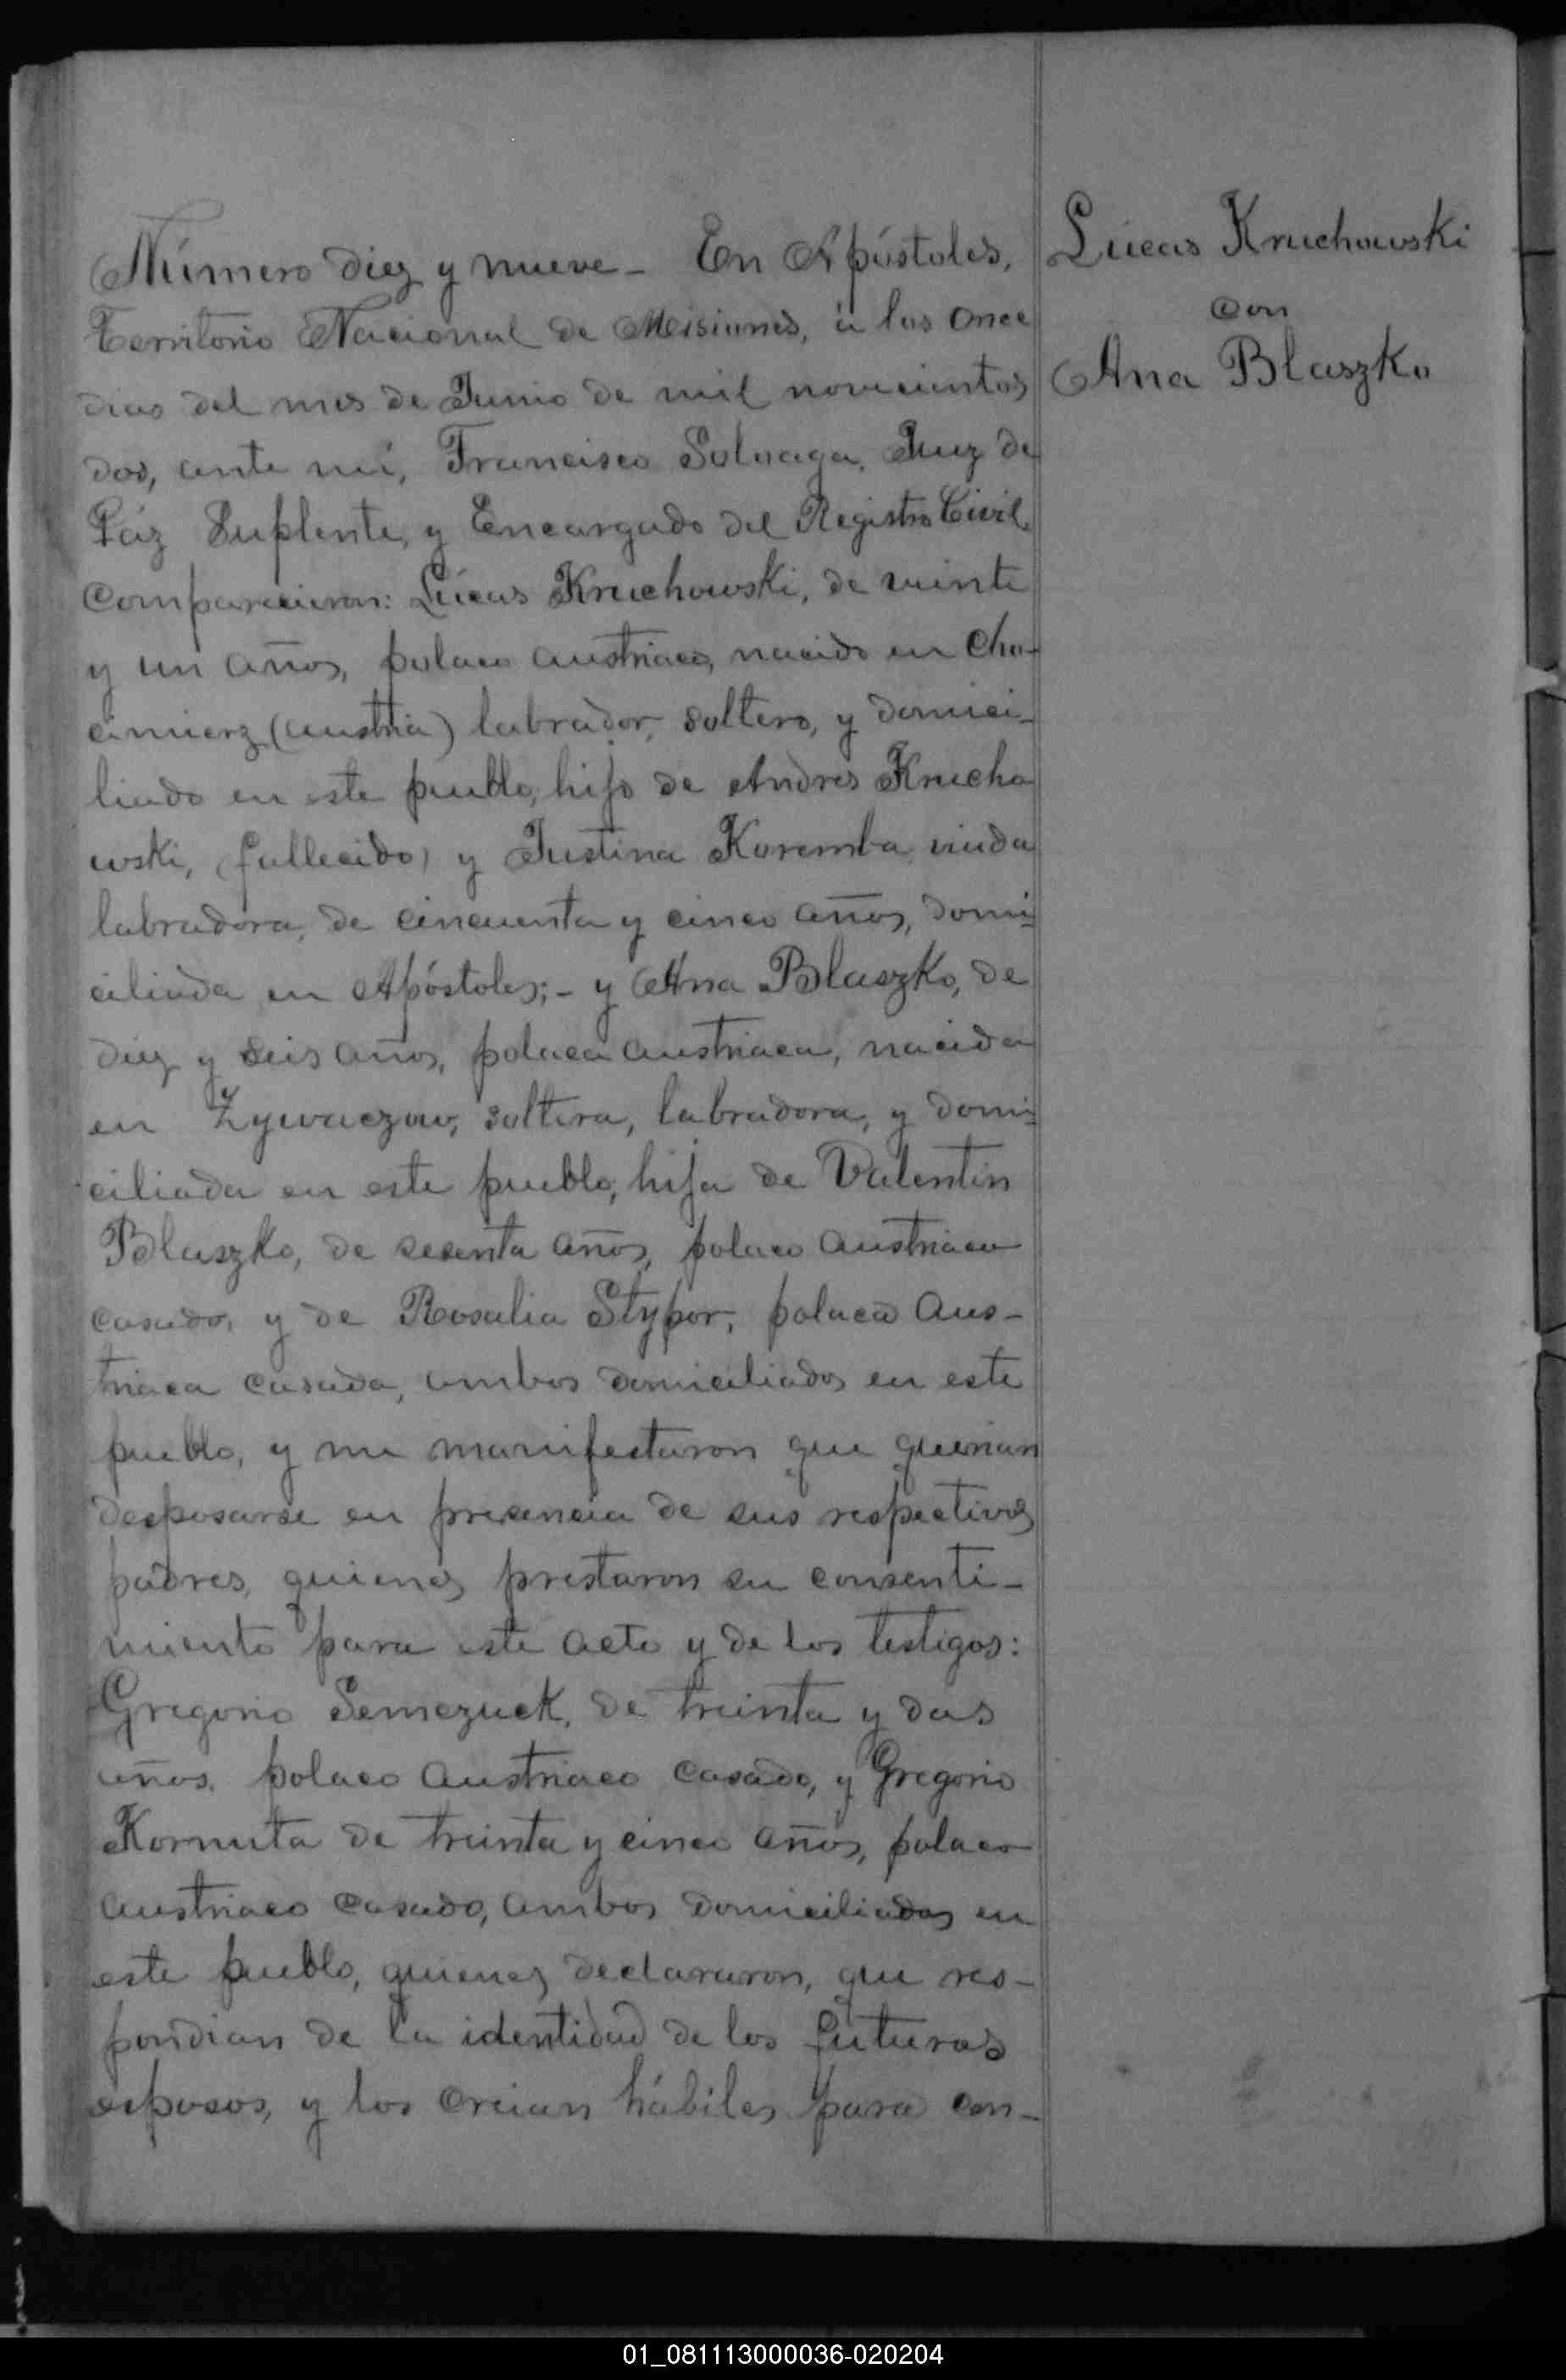 Número diez y nueve - En Apóstoles,
Territorio Nacional de Misiones, á los once
dias del mes de Junio de mil novecientos
dos, ante mi, Francisco Solnaga, Juez de
Páz Suplente, y Encargado del Registro Civil,
comparecieron: Lúcas Kruchowski, de veinte
y un años, polaco austriaco, nacido en Cho-
cimierz (austria) labrador, soltero, y domici-
liado en este pueblo, hijo de Andres Krucho
wski, (fallecido) y Justina Koremba viuda
labradora, de cincuenta y cinco años, domi-
ciliada en Apóstoles; - y Ana Blaszko, de
diez y seis años, polaca austriaca, nacida
en Zywaczow, soltera, labradora, y domi-
ciliada en este pueblo, hija de Valentin
Blaszko, de sesenta años, polaco austriaco
casado, y de Rosalia Stypor, polaca aus-
triaca casada, ambos domiciliados en este
pueblo, y me manifestaron que querian
desposarse en presencia de sus respectivos
padres, quienes prestaron su consenti-
miento para este acto y de los testigos:
Gregorio Semczuck, de treinta y dos
años, polaco austriaco casado, y Gregorio
Kornuta de treinta y cinco años, polaco
austriaco casado, ambos domiciliados en
este pueblo, quienes declararon, que res-
pondian de la identidad de los futuros
esposos, y los creian hábiles para con-
Lúcas Kruchowski
con
Ana Blaszko
01_081113000036-020204